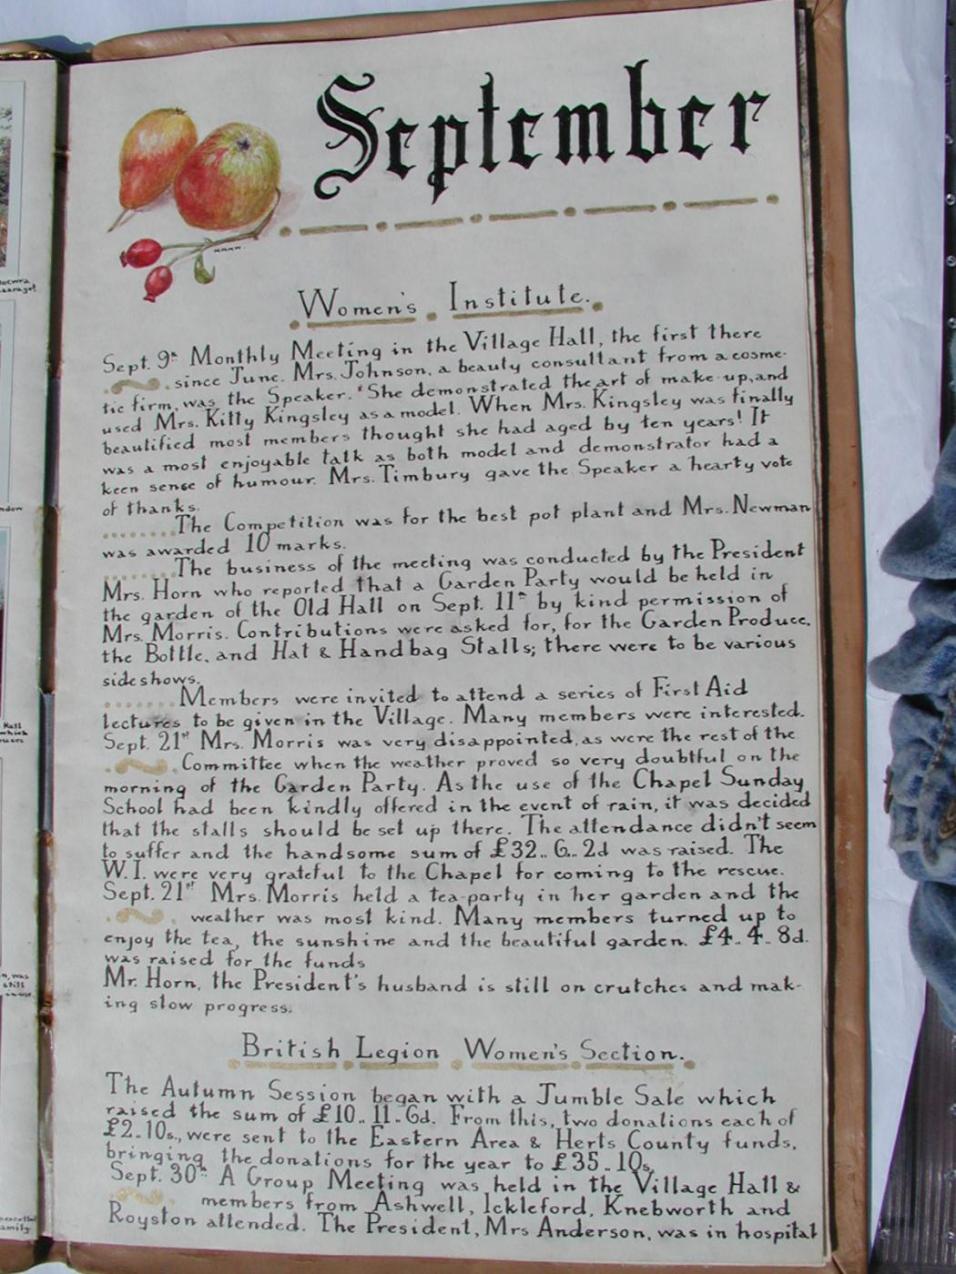 September
Women's Institute.
Sept. 9th Monthly Meeting in the Village Hall, the first there
since June. Mrs. Johnson, a beauty consultant from a cosme-
tic firm, was the Speaker. She demonstrated the art of make-up, and
used Mrs. Kitty Kingsley as a model. When Mrs. Kingsley was finally
beautified most members thought she had aged by ten years! It
was a most enjoyable talk as both model and demonstrator had a
keen sense of humour. Mrs. Timbury gave the Speaker a hearty vote
of thanks.
The Competition was for the best pot plant and Mrs. Newman
was awarded 10 marks.
The business of the meeting was conducted by the President
Mrs. Horn who reported that a Garden Party would be held in
the garden of the Old Hall on Sept. 11th by kind permission of
Mrs. Morris. Contributions were asked for, for the Garden Produce,
the Bottle, and Hat & Handbag Stalls; there were to be various
sideshows.
Members were invited to attend a series of First Aid
lectures to be given in the Village. Many members were interested.
Sept. 21st Mrs. Morris was very disappointed, as were the rest of the
Committee when the weather proved so very doubtful on the
morning of the Garden Party. As the use of the Chapel Sunday
School had been kindly offered in the event of rain, it was decided
that the stalls should be set up there. The attendance didn't seem
to suffer and the handsome sum of £32.. 6.. 2d was raised. The
W.I. were very grateful to the Chapel for coming to the rescue.
Sept. 21st Mrs. Morris held a tea-party in her garden and the
weather was most kind. Many members turned up to
enjoy the tea, the sunshine and the beautiful garden. £4.. 4.. 8d.
was raised for the funds
Mr. Horn, the President's husband is still on crutches and mak-
ing slow progress.
British Legion Women's Section.
The Autumn Session began with a Jumble Sale which
raised the sum of £10.. 11.. 6d. From this, two donations each of
£2..10s., were sent to the Eastern Area & Herts County funds,
bringing the donations for the year to £35..10s.
Sept. 30th A Group Meeting was held in the Village Hall &
members from Ashwell, Ickleford, Knebworth and
Royston attended. The President, Mrs Anderson, was in hospital